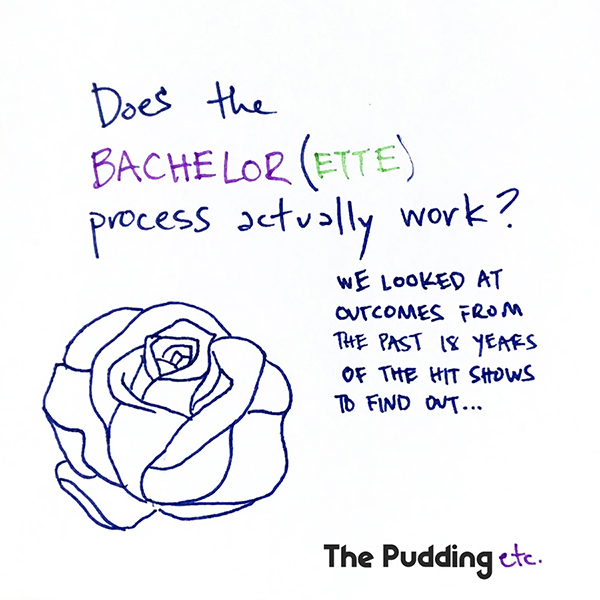 Does the
BACHELOR(ETTE)
process actually work?
WE LOOKED AT
OUTCOMES FROM
THE PAST 18 YEARS
OF THE HIT SHOWS
TO FIND OUT...
The Pudding etc.